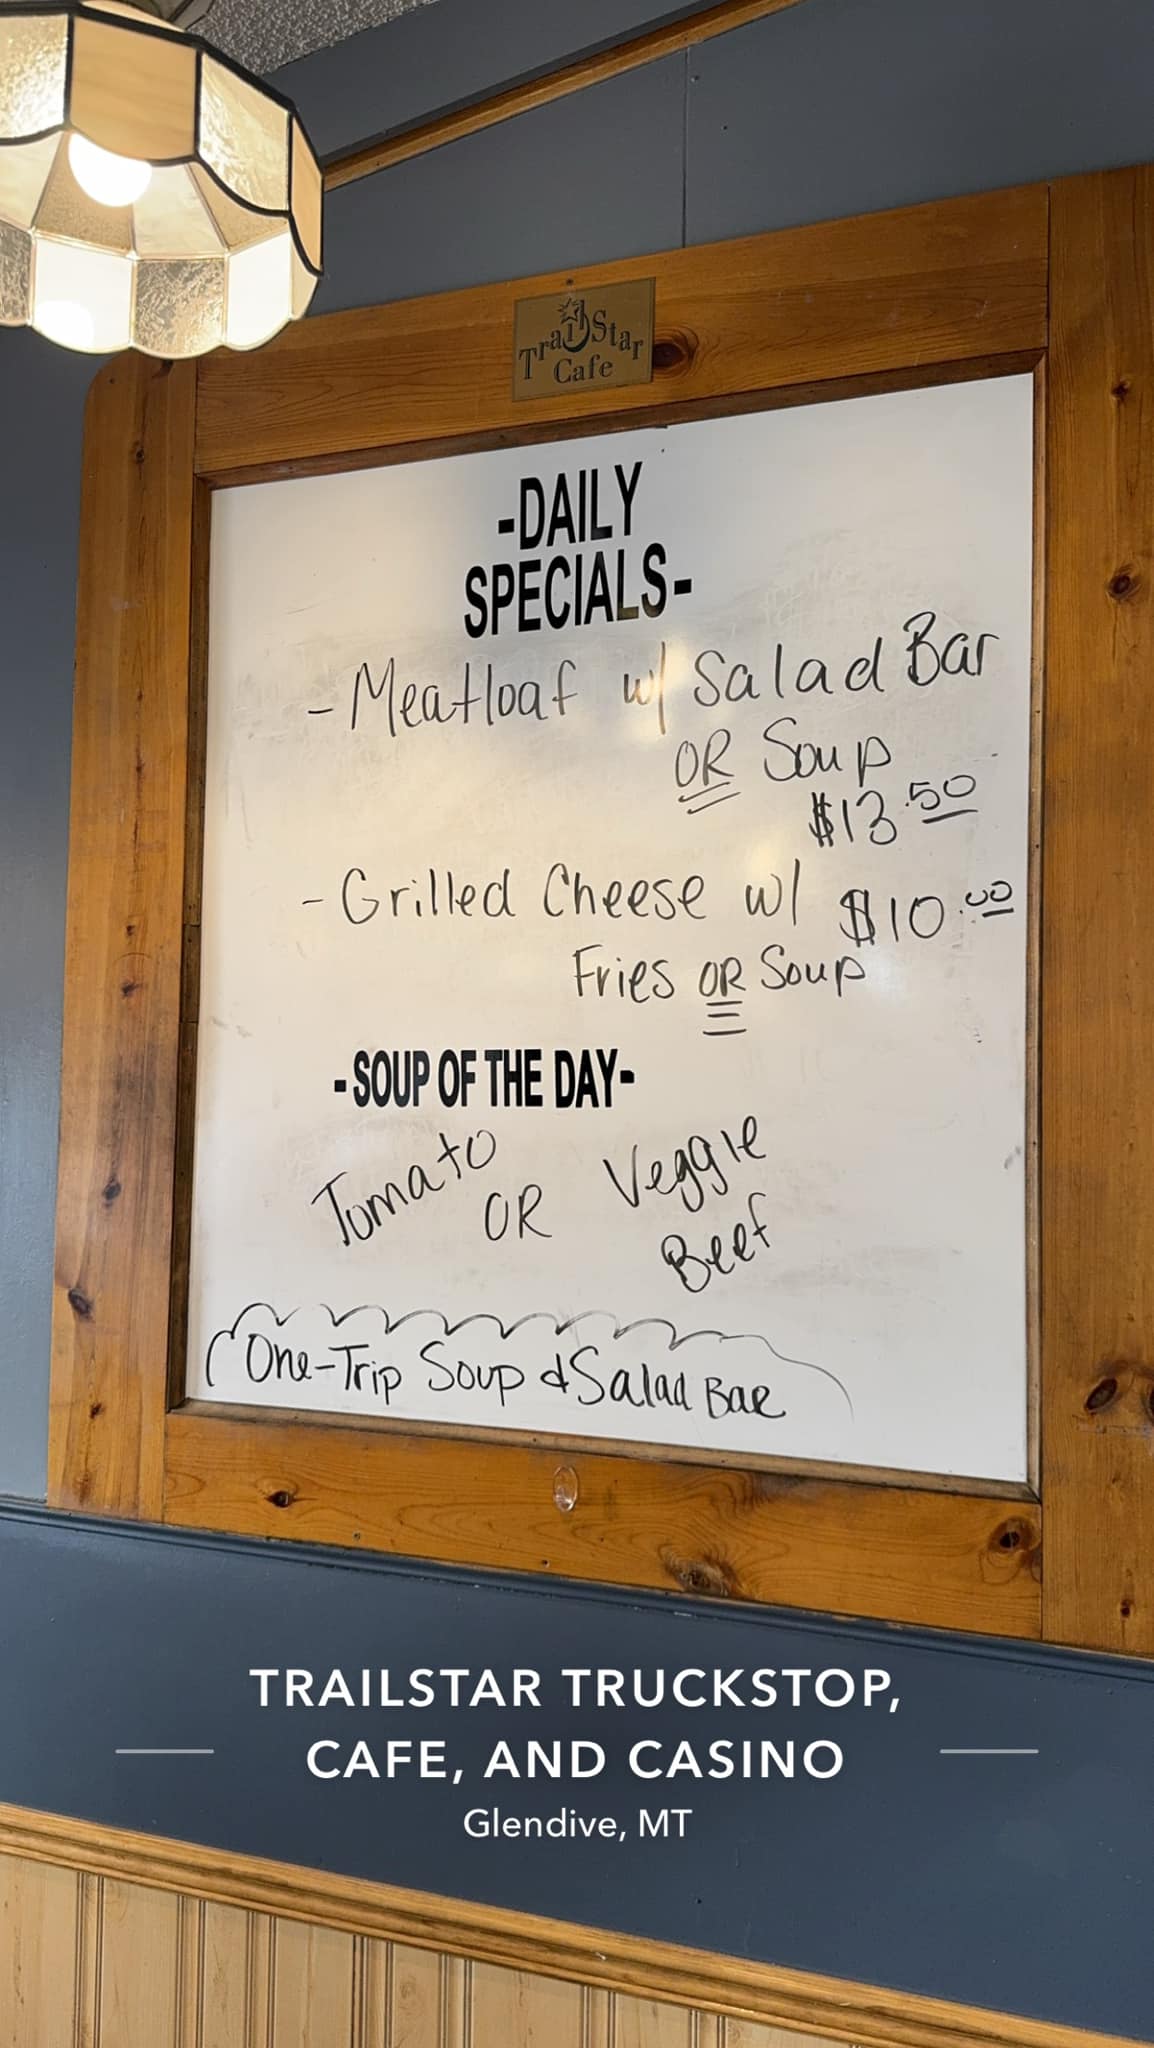 TrailStar
Cafe
-DAILY
SPECIALS-
- Meatloaf w/ Salad Bar
OR Soup
$13.50
- Grilled Cheese w/ $10.00
Fries OR Soup
-SOUP OF THE DAY-
Tomato OR Veggie
Beef
One-Trip Soup & Salad Bar
TRAILSTAR TRUCKSTOP,
CAFE, AND CASINO
Glendive, MT